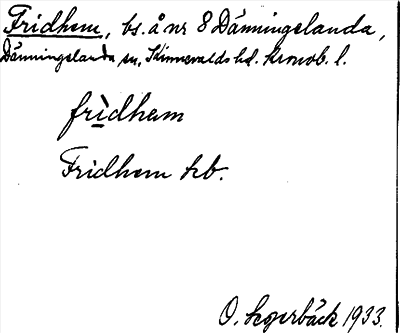 Fridhem, bs. å nr 8 Dänningelanda,
Dänningelanda sn, Kinnevalds hd. Kronob. l.
frìdhem
Fridhem hb.
O. Segerbäck 1933.